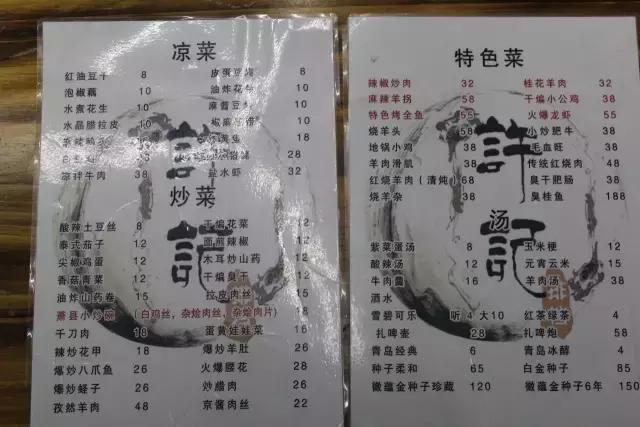 凉菜
红油豆干 8 皮蛋豆腐 8
泡椒藕 10 油炸花生 10
水煮花生 8 麻酱豆 10
水晶腊拉皮 10 椒麻 10
18
28
凉拌牛肉 38 盐水虾 32
許記
炒菜
酸辣土豆丝 8 干煸花菜 12
泰式茄子 12 面煎辣椒 12
尖椒鸡蛋 12 木耳炒山药 12
香菇青菜 12 干煸臭干 12
油炸山药卷 15 拉皮肉丝 15
萧县小炒碗（白鸡丝，杂烩肉丝，杂烩肉片）
千刀肉 18 蛋黄娃娃菜 16
辣炒花甲 18 爆炒羊肚 26
爆炒八爪鱼 26 火爆腰花 28
爆炒蛏子 26 炒腊肉 26
孜然羊肉 48 京酱肉丝 22
特色菜
辣椒炒肉 32 桂花羊肉 32
麻辣羊拐 58 干煸小公鸡 38
特色烤全鱼 55 火爆龙虾 55
烧羊头 58 小炒肥牛 38
地锅小鸡 38 毛血旺 38
羊肉滑肌 38 传统红烧肉 48
红烧羊肉（清炖）68 臭干肥肠 38
烧羊杂 38 臭桂鱼 188
許記
汤
紫菜蛋汤 8 玉米梗 12
酸辣汤 12 元宵云米 15
牛肉羹 16 羊肉汤 38
酒水
雪碧可乐 听4 大10 红茶绿茶 4
扎啤壶 28 扎啤炮 58
青岛经典 6 青岛冰醇 4
种子柔和 65 白金种子 85
徽蕴金种子珍藏 120 徽蕴金种子6年 150